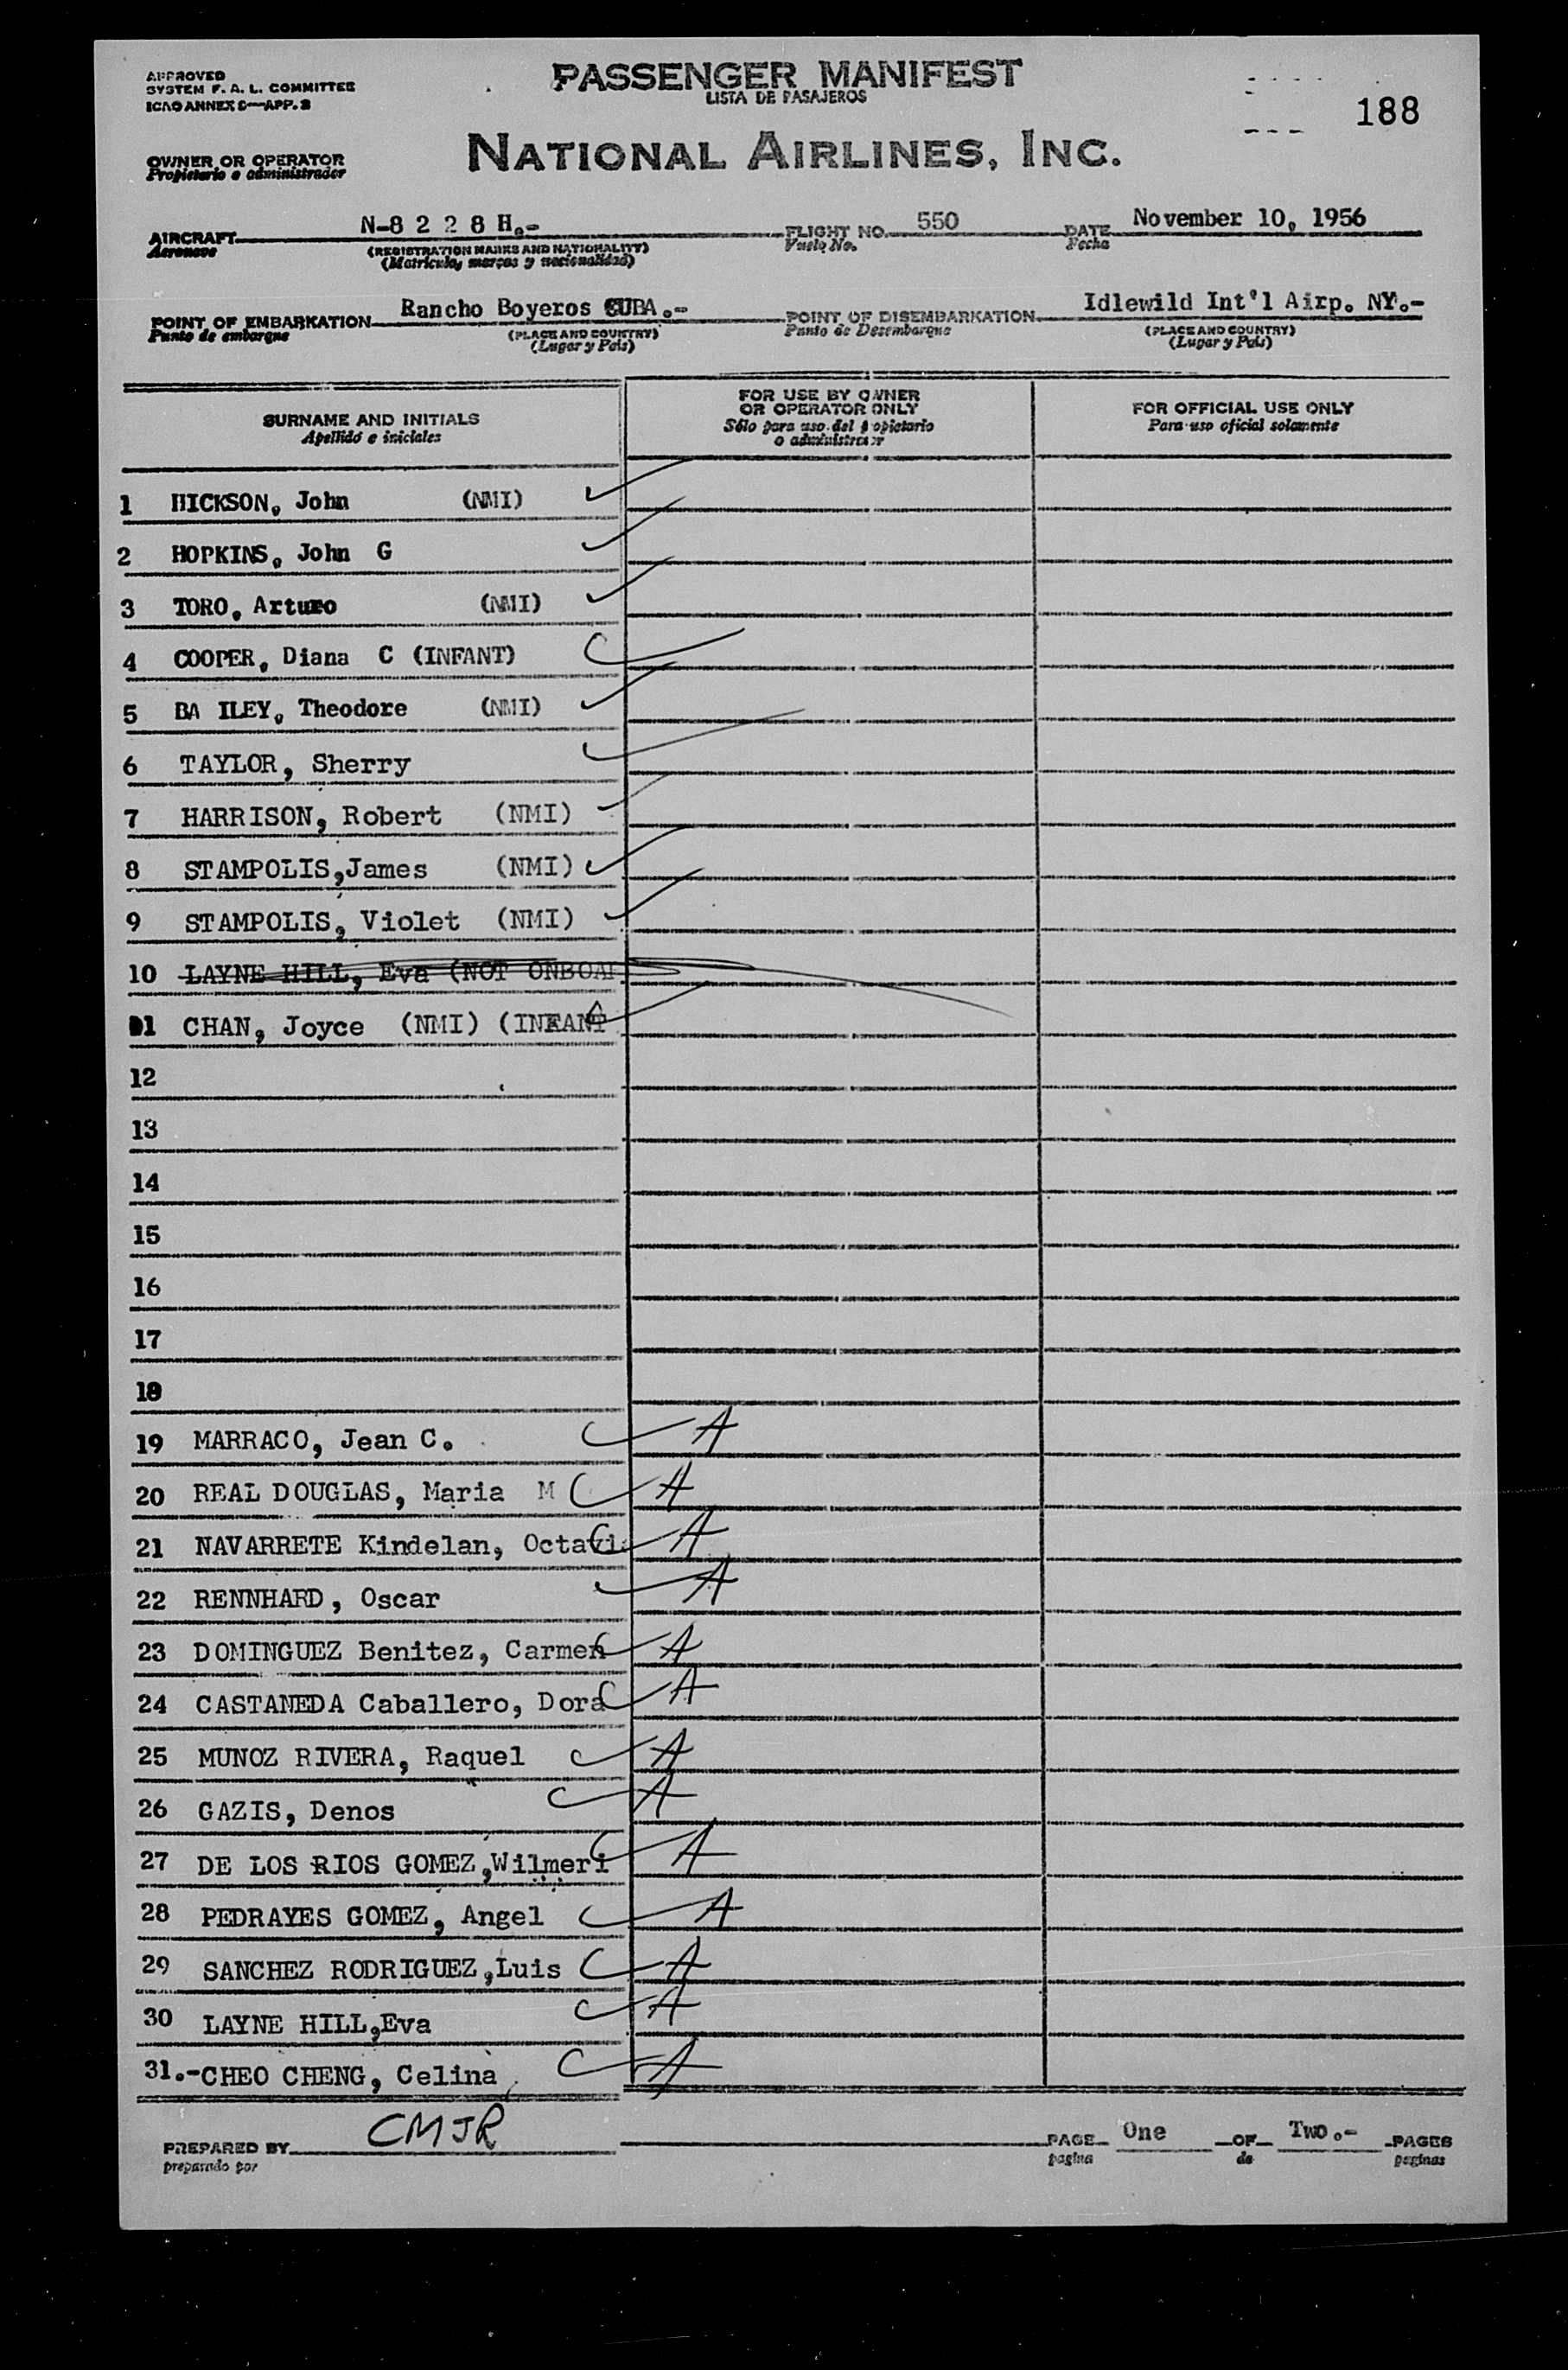 APPROVED
SYSTEM F. A. L. COMMITTEE
ICAO ANNEX 9—APP. 3
PASSENGER MANIFEST
LISTA DE PASAJEROS
188
OWNER OR OPERATOR
Propietario o administrador
NATIONAL AIRLINES, INC.
AIRCRAFT N-8 2 2 8 H.- FLIGHT NO. 550 DATE November 10, 1956
Aeronave (REGISTRATION MARKS AND NATIONALITY) Vuelo No. Fecha
(Matricula, marcas y nacionalidad)
POINT OF EMBARKATION Rancho Boyeros CUBA.- POINT OF DISEMBARKATION Idlewild Int'l Airp. NY.-
Punto de embarque (PLACE AND COUNTRY) Punto de Desembarque (PLACE AND COUNTRY)
(Lugar y Pais) (Lugar y Pais)
SURNAME AND INITIALS
Apellido e iniciales
FOR USE BY OWNER
OR OPERATOR ONLY
Sólo para uso del propietario
o administrador
FOR OFFICIAL USE ONLY
Para uso oficial solamente
1 HICKSON, John (NMI)
2 HOPKINS, John G
3 TORO, Arturo (NMI)
4 COOPER, Diana C (INFANT)
5 BA ILEY, Theodore (NMI)
6 TAYLOR, Sherry
7 HARRISON, Robert (NMI)
8 STAMPOLIS,James (NMI)
9 STAMPOLIS, Violet (NMI)
10 LAYNE HILL, Eva (NOT ONBOAR
11 CHAN, Joyce (NMI) (INFANT
12
13
14
15
16
17
18
19 MARRACO, Jean C. A
20 REAL DOUGLAS, Maria M A
21 NAVARRETE Kindelan, Octavi A
22 RENNHARD, Oscar A
23 DOMINGUEZ Benitez, Carmen A
24 CASTANEDA Caballero, Dora A
25 MUNOZ RIVERA, Raquel A
26 GAZIS, Denos A
27 DE LOS RIOS GOMEZ,Wilmeri A
28 PEDRAYES GOMEZ, Angel A
29 SANCHEZ RODRIGUEZ,Luis A
30 LAYNE HILL,Eva A
31.-CHEO CHENG, Celina A
PREPARED BY CMJR PAGE One OF Two.- PAGES
preparado por pagina de paginas